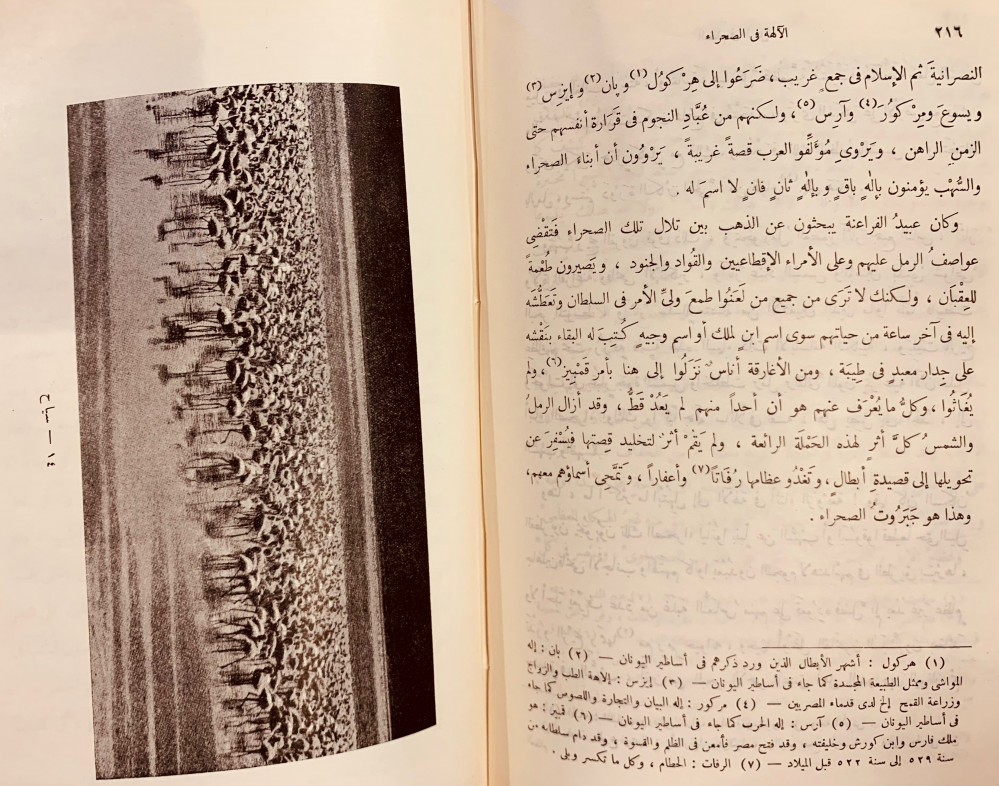 ٢١٦
الآلهة فى الصحراء
النصرانيةَ ثم الإسلام فى جمع ٍ غريب، ضَرَعُوا إلى هِرْ كوُل (١) و پان (٢) و إيزِس (٣)
ويسوعَ ومِرْ كوُرَ (٤) وآرِس (٥) ، ولكنهم من عُبَّادِ النجوم فى قَرَارة أنفسهم حتى
الزمنِ الراهن ، ويَرْوِى مُؤَلِّفو العرب قصةً غريبةً ، يَرْوُون أن أبناءَ الصحراء
والسُّهْب يؤمنون بإلٰهٍ باقٍ و بإلٰهٍ ثانٍ فانٍ لا اسمَ له .
وكان عبيدُ الفراعنة يبحثون عن الذهب بين تلال تلك الصحراء فَتَقْضِى
عواصفُ الرمل عليهم وعلى الأمراء الإقطاعيين والقُواد والجنود ، ويَصيرون طُعْمةً
للعِقْبَان ، ولكنك لا تَرَى من جميع من لَعَنُوا طمعَ ولىِّ الأمر فى السلطان وتَعَطُّشَه
إليه فى آخر ساعة من حياتهم سوى اسم ابنٍ لملك أو اسم وجيهٍ كُتِبَ له البقاء بنَقْشه
على جِدار معبدٍ فى طِيبَة ، ومن الأغارقة أناسٌ نَزَلُوا إلى هنا بأمر قَمْبِيز (٦)، ولم
يُغَاثُوا ، وكلُّ ما يُعْرَف عنهم هو أن أحداً منهم لم يَعُدْ قَطُّ ، وقد أزال الرملُ
والشمسُ كلَّ أثرٍ لهذه الحَمْلَة الرائعة ، ولم يَقُمْ أثرٌ لتخليد قِصتها فيُسْفِرَ عن
تحويلها إلى قصيدةِ أبطالٍ ، وتَغْدُو عظامها رُفَاتًا (٧) وأعفاراً ، وتَمَّحِى أسماؤهم معهم،
وهذا هو جَبَرُوتُ الصحراء .
(١) هركول : أشهر الأبطال الذين ورد ذكرهم فى أساطير اليونان — (٢) پان : إله
المواشى وممثل الطبيعة المجسدة كما جاء فى أساطير اليونان — (٣) إيزس : إلاهة الطب والزواج
وزراعة القمح إلخ لدى قدماء المصريين — (٤) مركور : إله البيان والتجارة واللصوص كما جاء
فى أساطير اليونان — (٥) آرس : إله الحرب كما جاء فى أساطير اليونان — (٦) قمبيز : هو
ملك فارس وابن كورش وخليفته ، وقد فتح مصر فأمعن فى الظلم والقسوة ، وقد دام سلطانه من
سنة ٥٢٩ إلى سنة ٥٢٢ قبل الميلاد — (٧) الرفات : الحطام ، وكل ما تكسر وبلى .